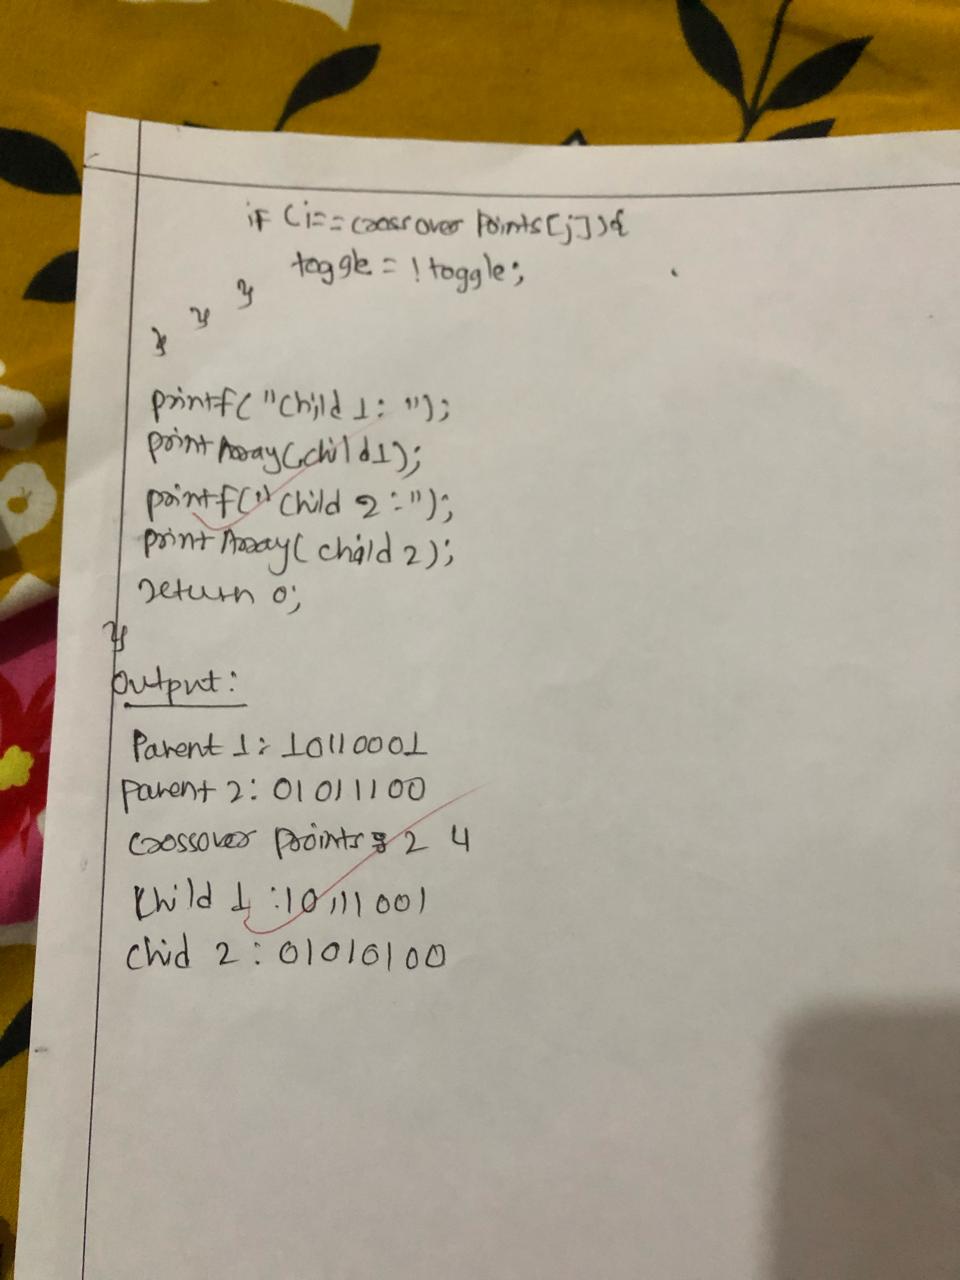 if (i==crossover points[j]){
toggle = !toggle;
}
}
}
printf("Child 1: ");
print Array(child1);
printf(" Child 2 : ");
print Array( child 2);
return 0;
}
Output:
Parent 1: 10110001
parent 2: 01011100
crossover points: 2 4
Child 1 :10111001
Chid 2: 01010100